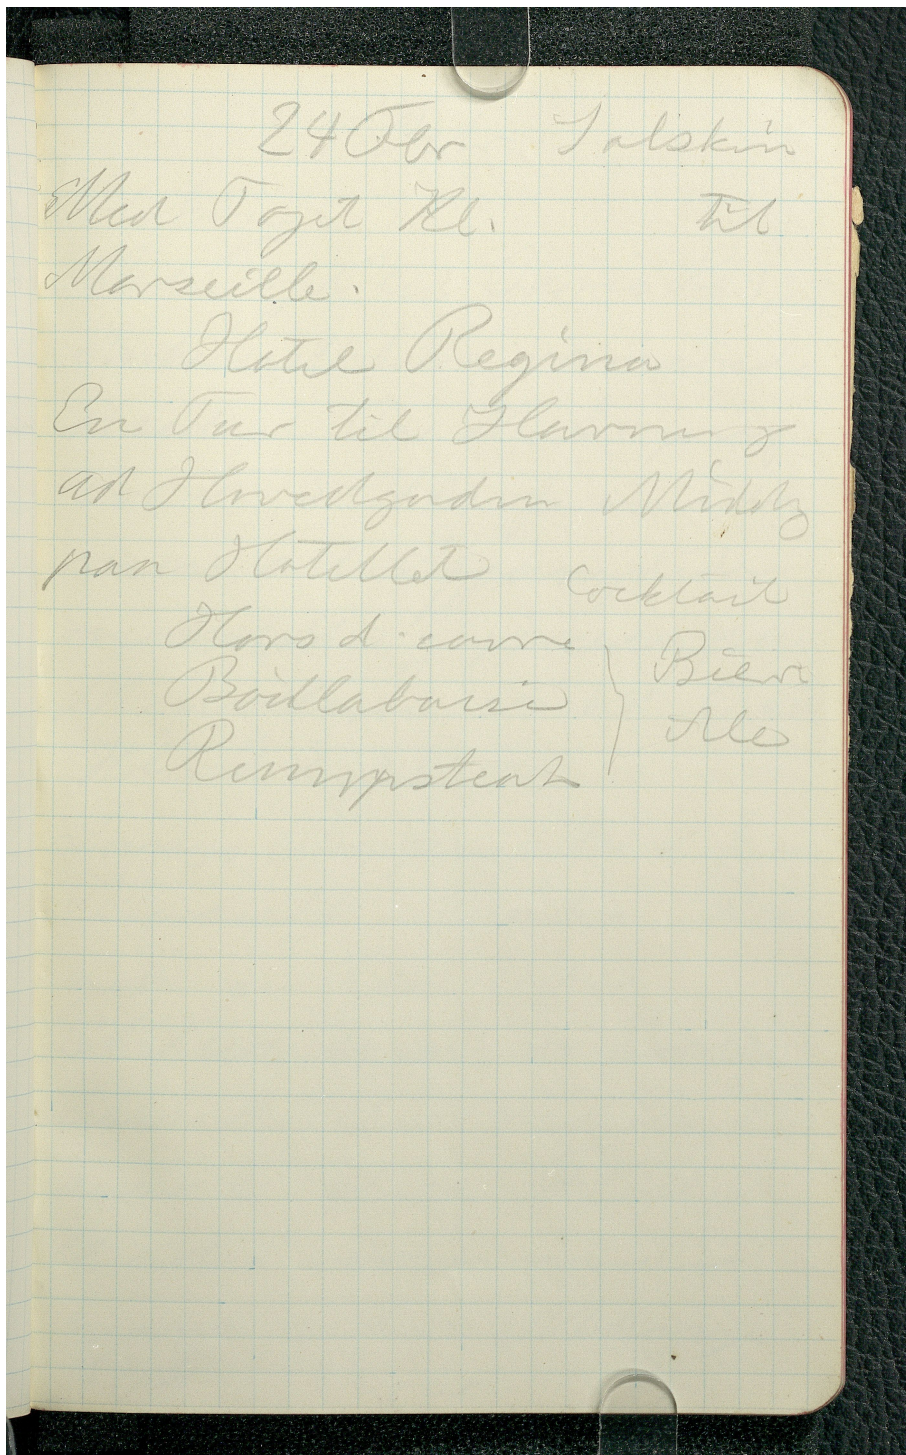 24 Febr Solskin
Med Toget Kl. til
Marseille.
Hotel Regina
En Tur til Havnen
ad Hovedgaden Middg
paa Hotellet Cocktail
Hors d. ouvre
Böillabaisi Biere
Rumpsteak Ale